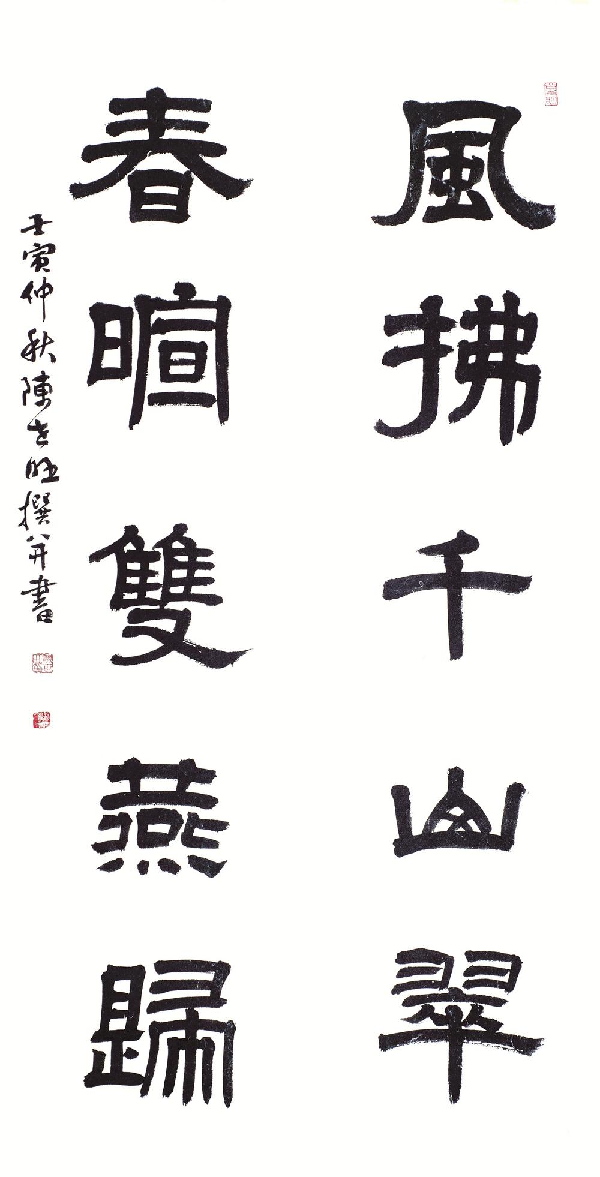 風拂千山翠
春暄雙燕歸
壬寅仲秋陳世旺撰并書